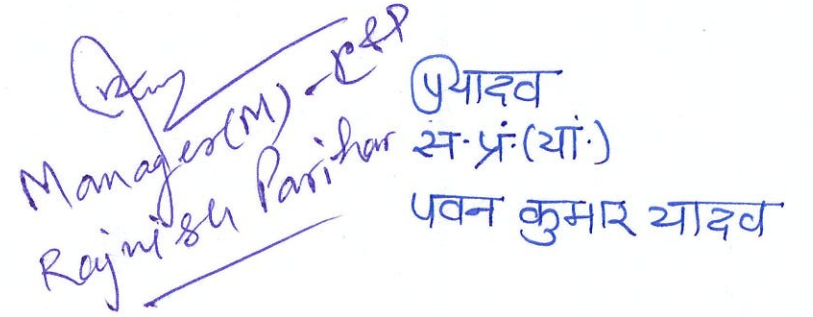 Manager(M)-C&P
Rajnish Parihar
पयादव
स.प्रं.(यां.)
पवन कुमार यादव